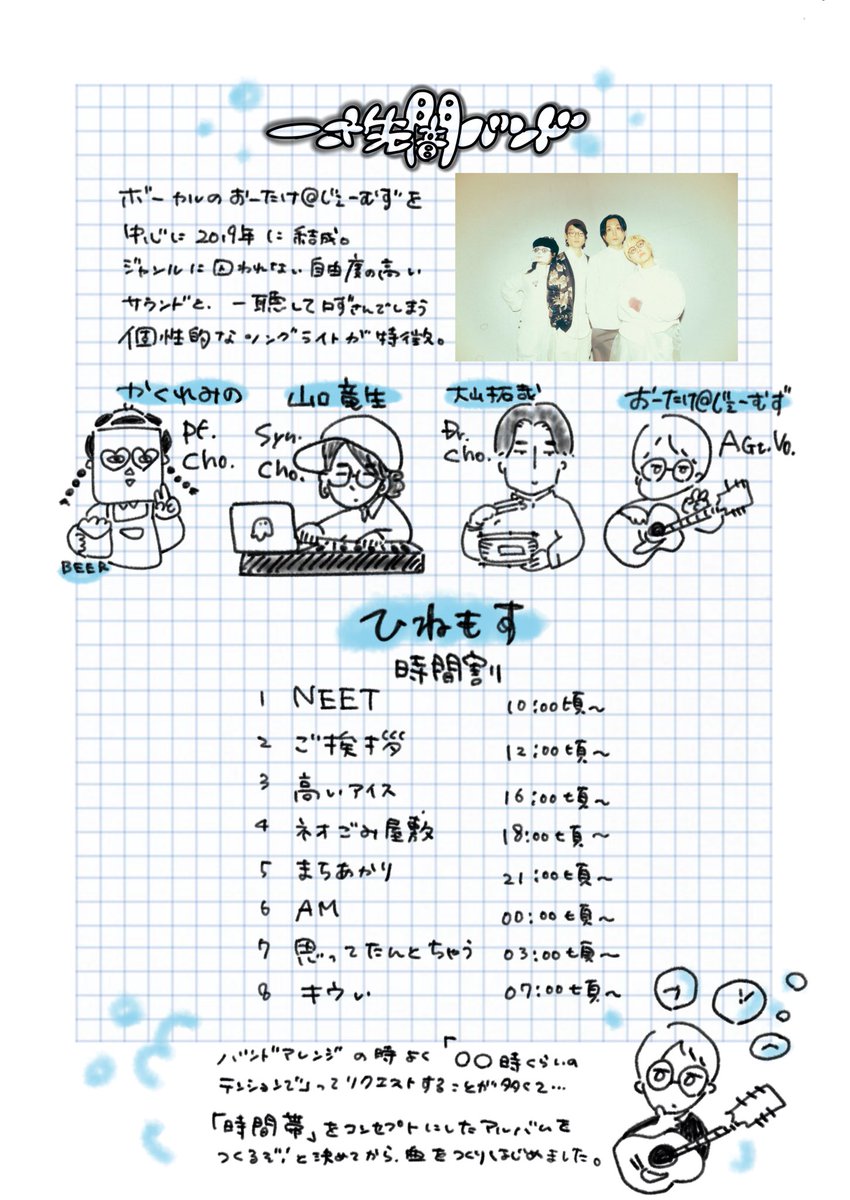 一寸先闇バンド
ボーカルのおーたけ@じぇーむずを
中心に2019年に結成。
ジャンルに囚われない自由度の高い
サウンドと、一聴して口ずさんでしまう
個性的なソングライトが特徴。
かくれみの
Pf.
Cho.
BEER
山口竜生
Syn.
Cho.
大山拓哉
Dr.
Cho.
おーたけ@じぇーむず
AGt.Vo.
ひねもす
時間割り
1 NEET 10:00頃〜
2 ご挨拶 12:00頃〜
3 高いアイス 16:00頃〜
4 ネオごみ屋敷 18:00頃〜
5 まちあかり 21:00頃〜
6 AM 00:00頃〜
7 思ってたんとちゃう 03:00頃〜
8 キウぃ 07:00頃〜
バンドアレンジの時よく「〇〇時くらいの
テンションで」ってリクエストすることが多くて…
「時間帯」をコンセプトにしたアルバムを
つくるぞ!と決めてから、曲をつくりはじめました。